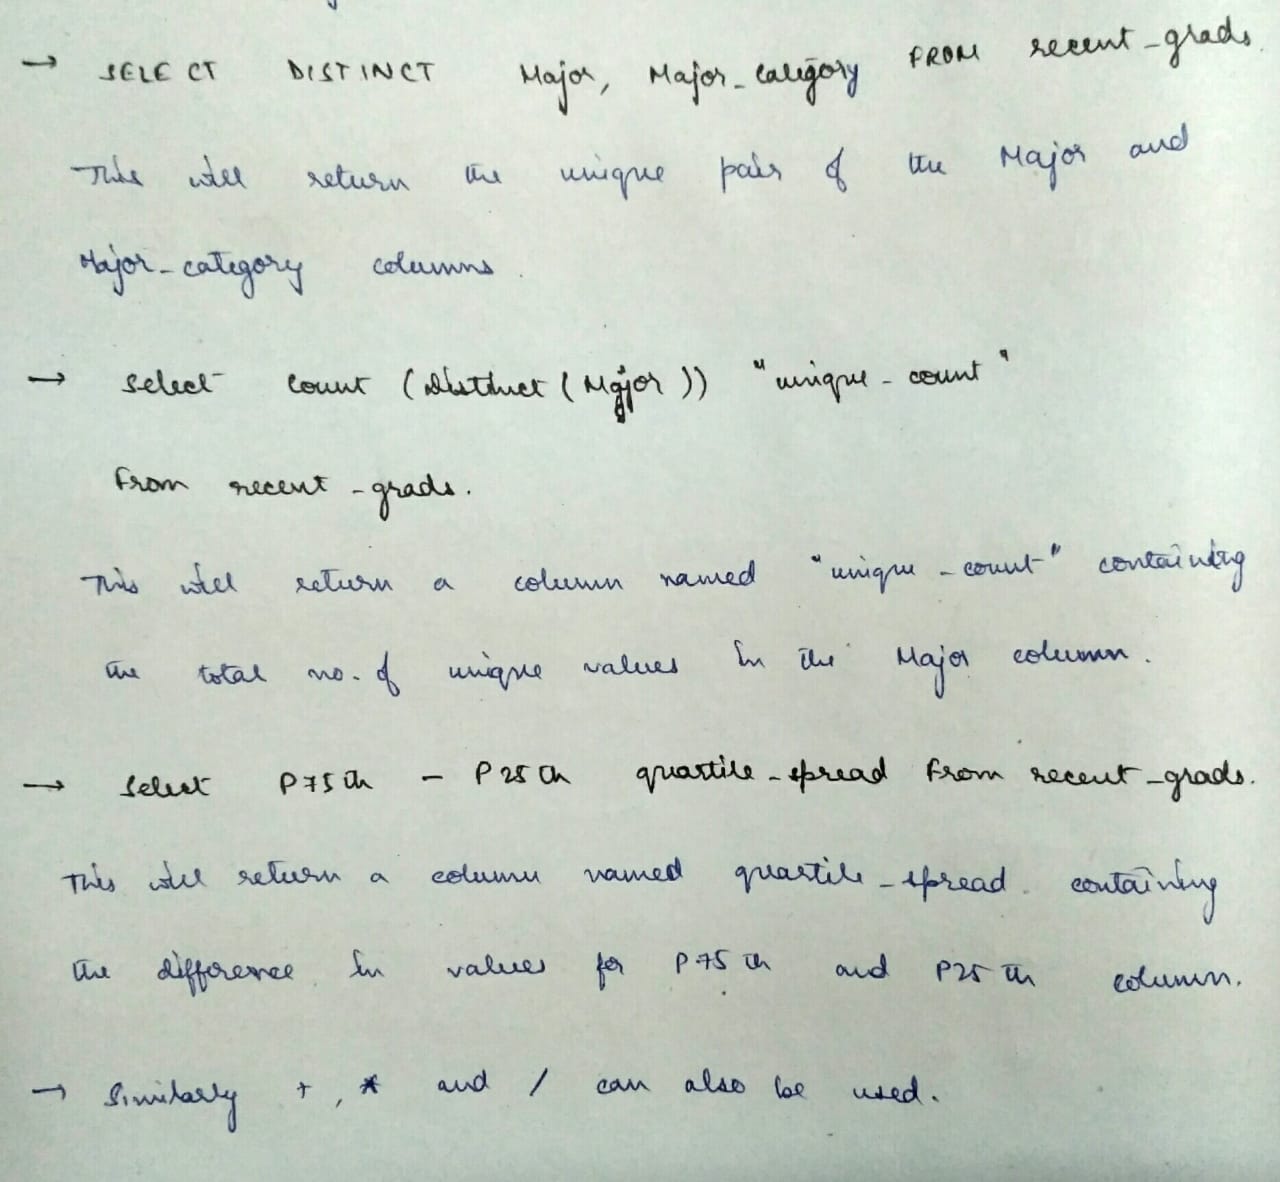 → SELECT DISTINCT Major, Major_category FROM recent_grads.
This will return the unique pair of the Major and
Major_category columns.
→ Select count (distinct (Major)) "unique_count"
From recent_grads.
This will return a column named "unique_count" containing
the total no. of unique values in the Major column.
→ Select P75th - P25th quartile_spread From recent_grads.
This will return a column named quartile_spread containing
the difference in values for P75th and P25th column.
→ Similarly +, * and / can also be used.